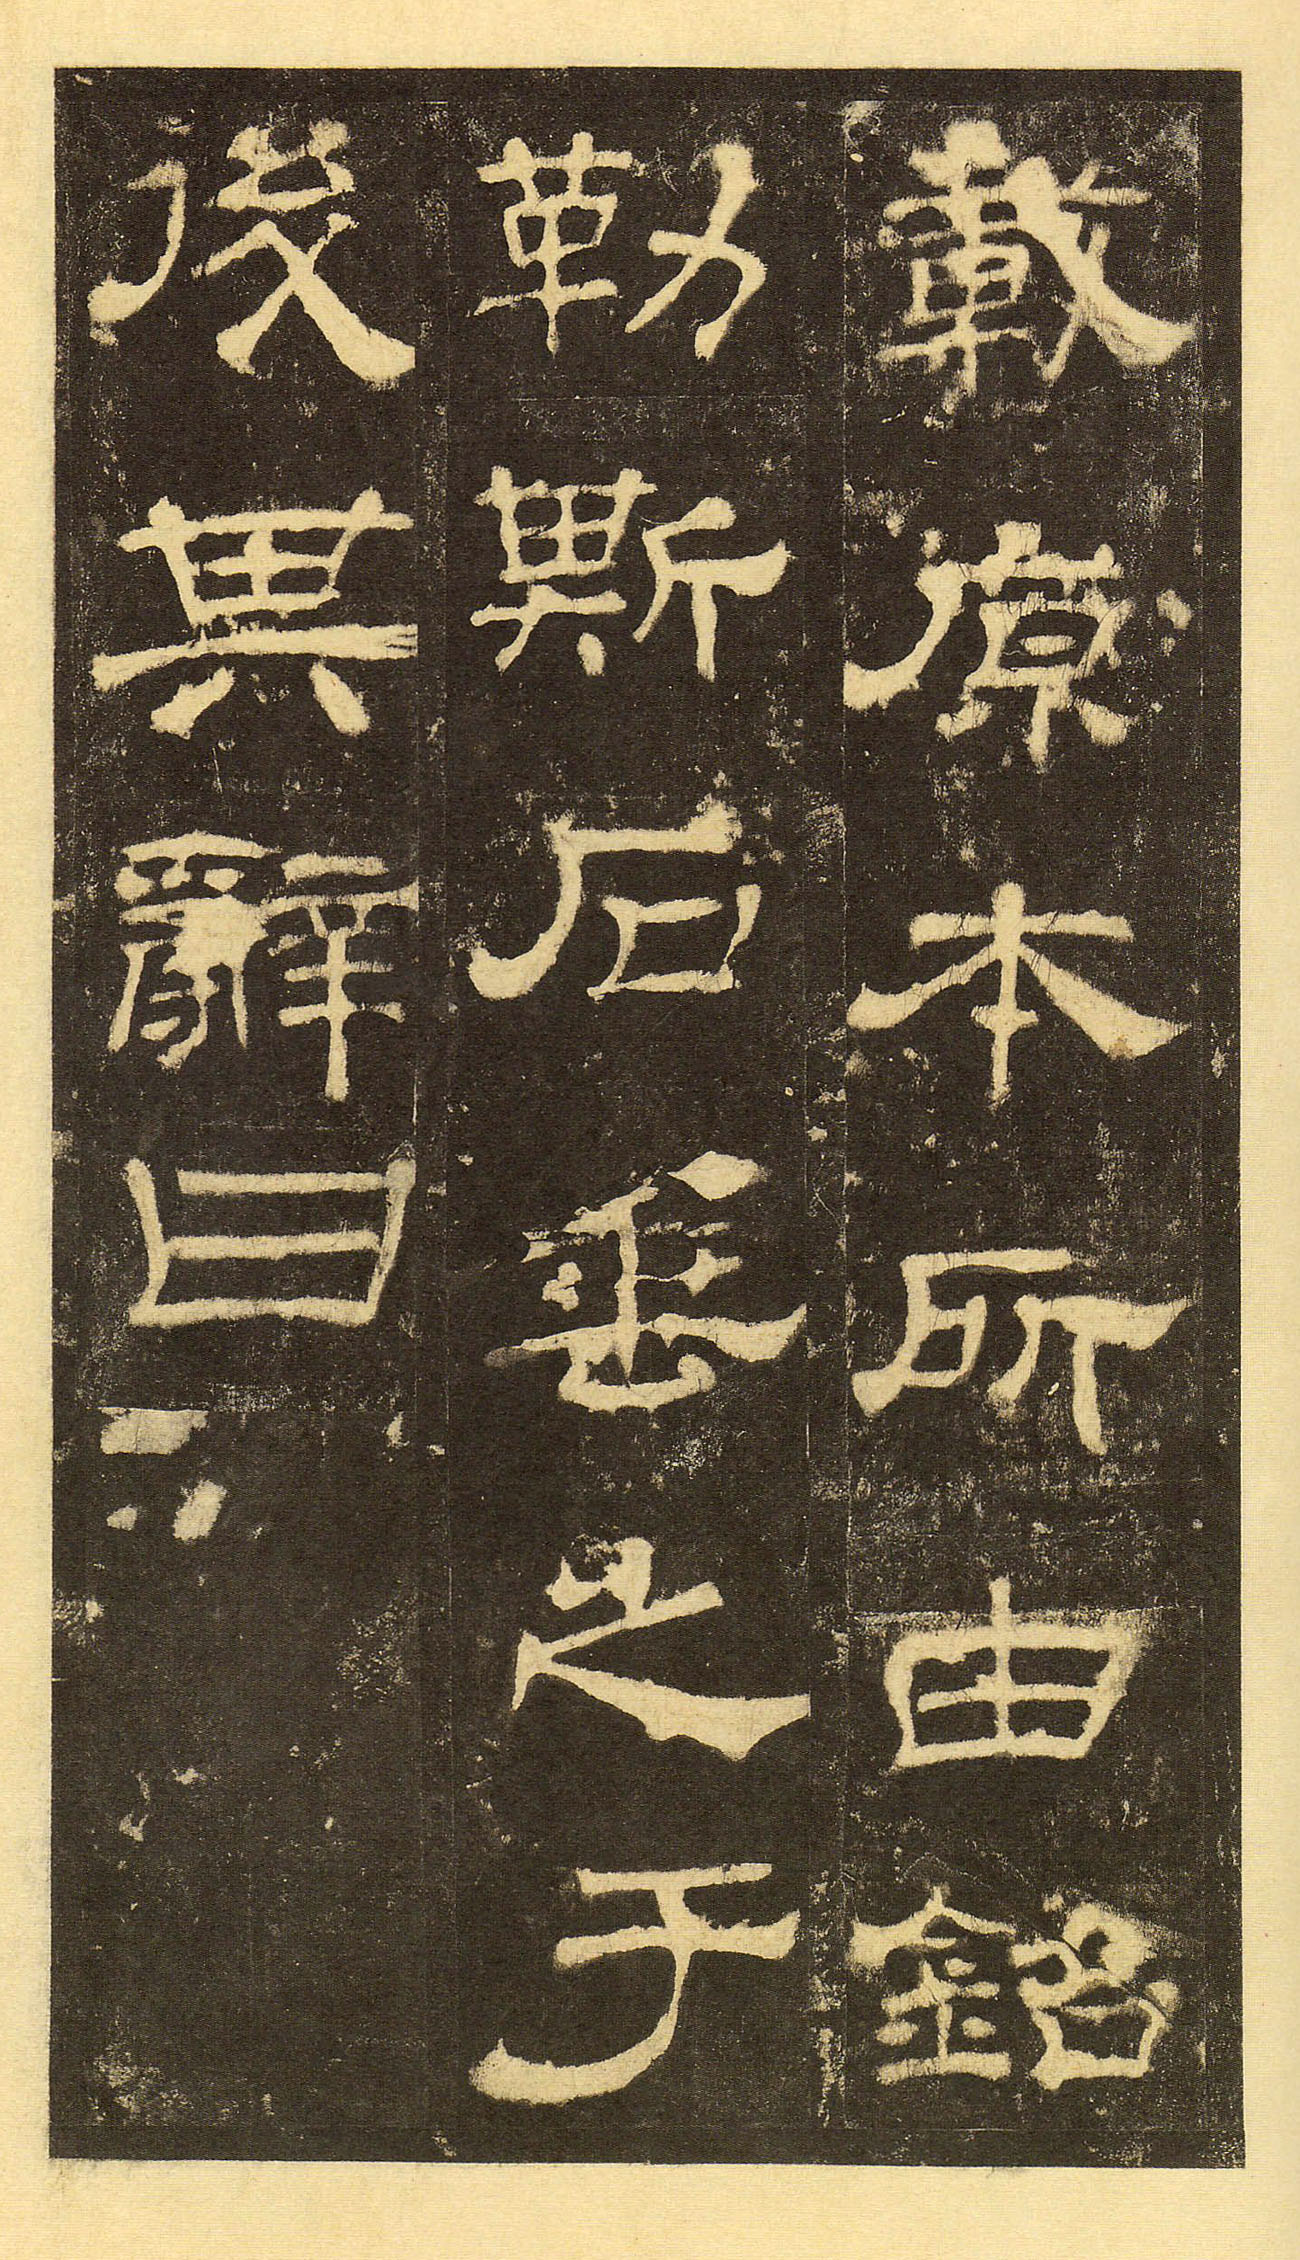 載原本所由銘
勒斯石垂之于
後其辭曰